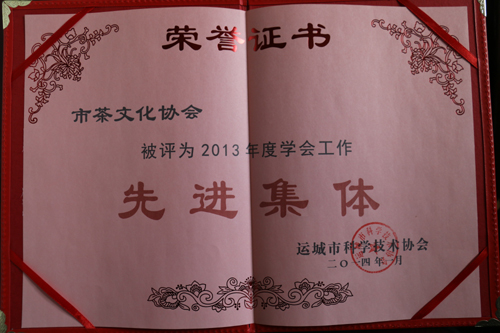 荣誉证书
市茶文化协会
被评为2013年度学会工作
先进集体
运城市科学技术协会
二〇一四年 月